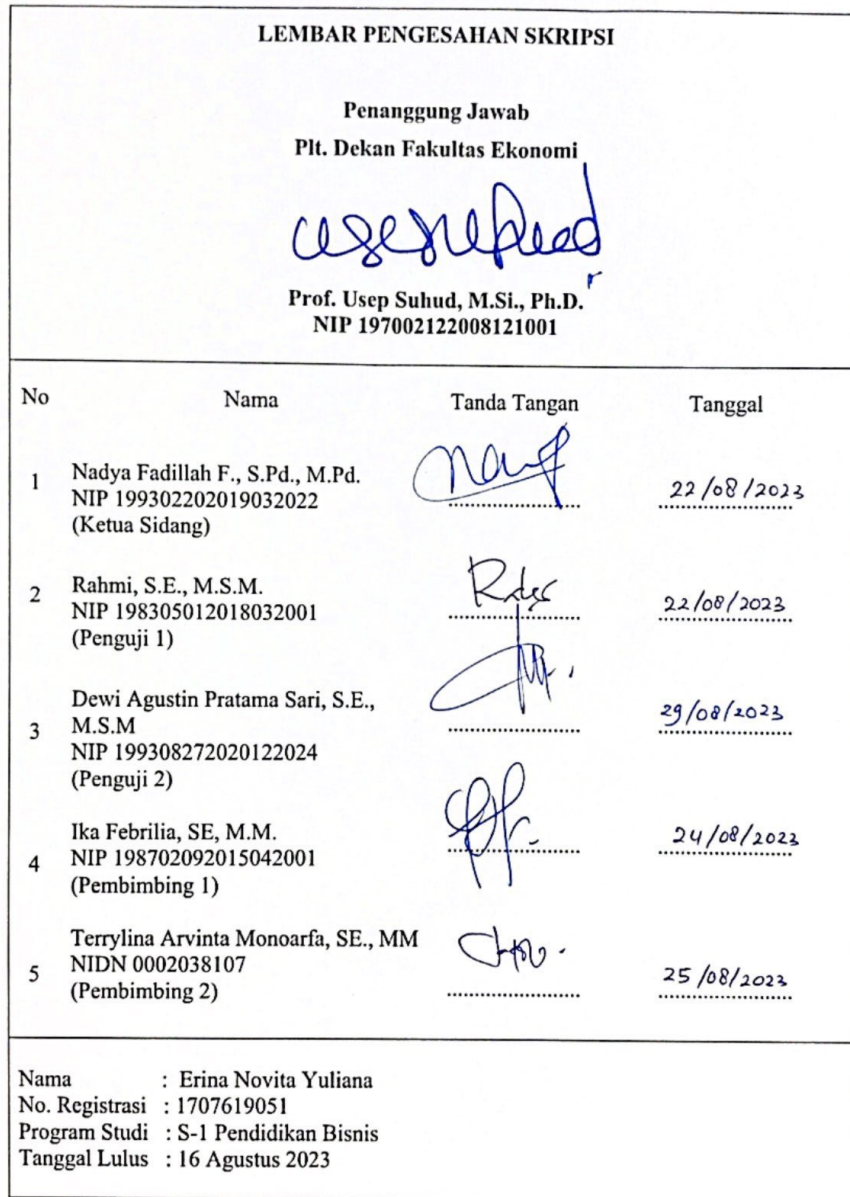 LEMBAR PENGESAHAN SKRIPSI
Penanggung Jawab
Plt. Dekan Fakultas Ekonomi
Prof. Usep Suhud, M.Si., Ph.D.
NIP 197002122008121001
No Nama Tanda Tangan Tanggal
1 Nadya Fadillah F., S.Pd., M.Pd.
NIP 199302202019032022 22/08/2023
(Ketua Sidang)
2 Rahmi, S.E., M.S.M.
NIP 198305012018032001 22/08/2023
(Penguji 1)
Dewi Agustin Pratama Sari, S.E.,
3 M.S.M 29/08/2023
NIP 199308272020122024
(Penguji 2)
Ika Febrilia, SE, M.M.
4 NIP 198702092015042001 24/08/2023
(Pembimbing 1)
Terrylina Arvinta Monoarfa, SE., MM
5 NIDN 0002038107 25/08/2023
(Pembimbing 2)
Nama : Erina Novita Yuliana
No. Registrasi : 1707619051
Program Studi : S-1 Pendidikan Bisnis
Tanggal Lulus : 16 Agustus 2023